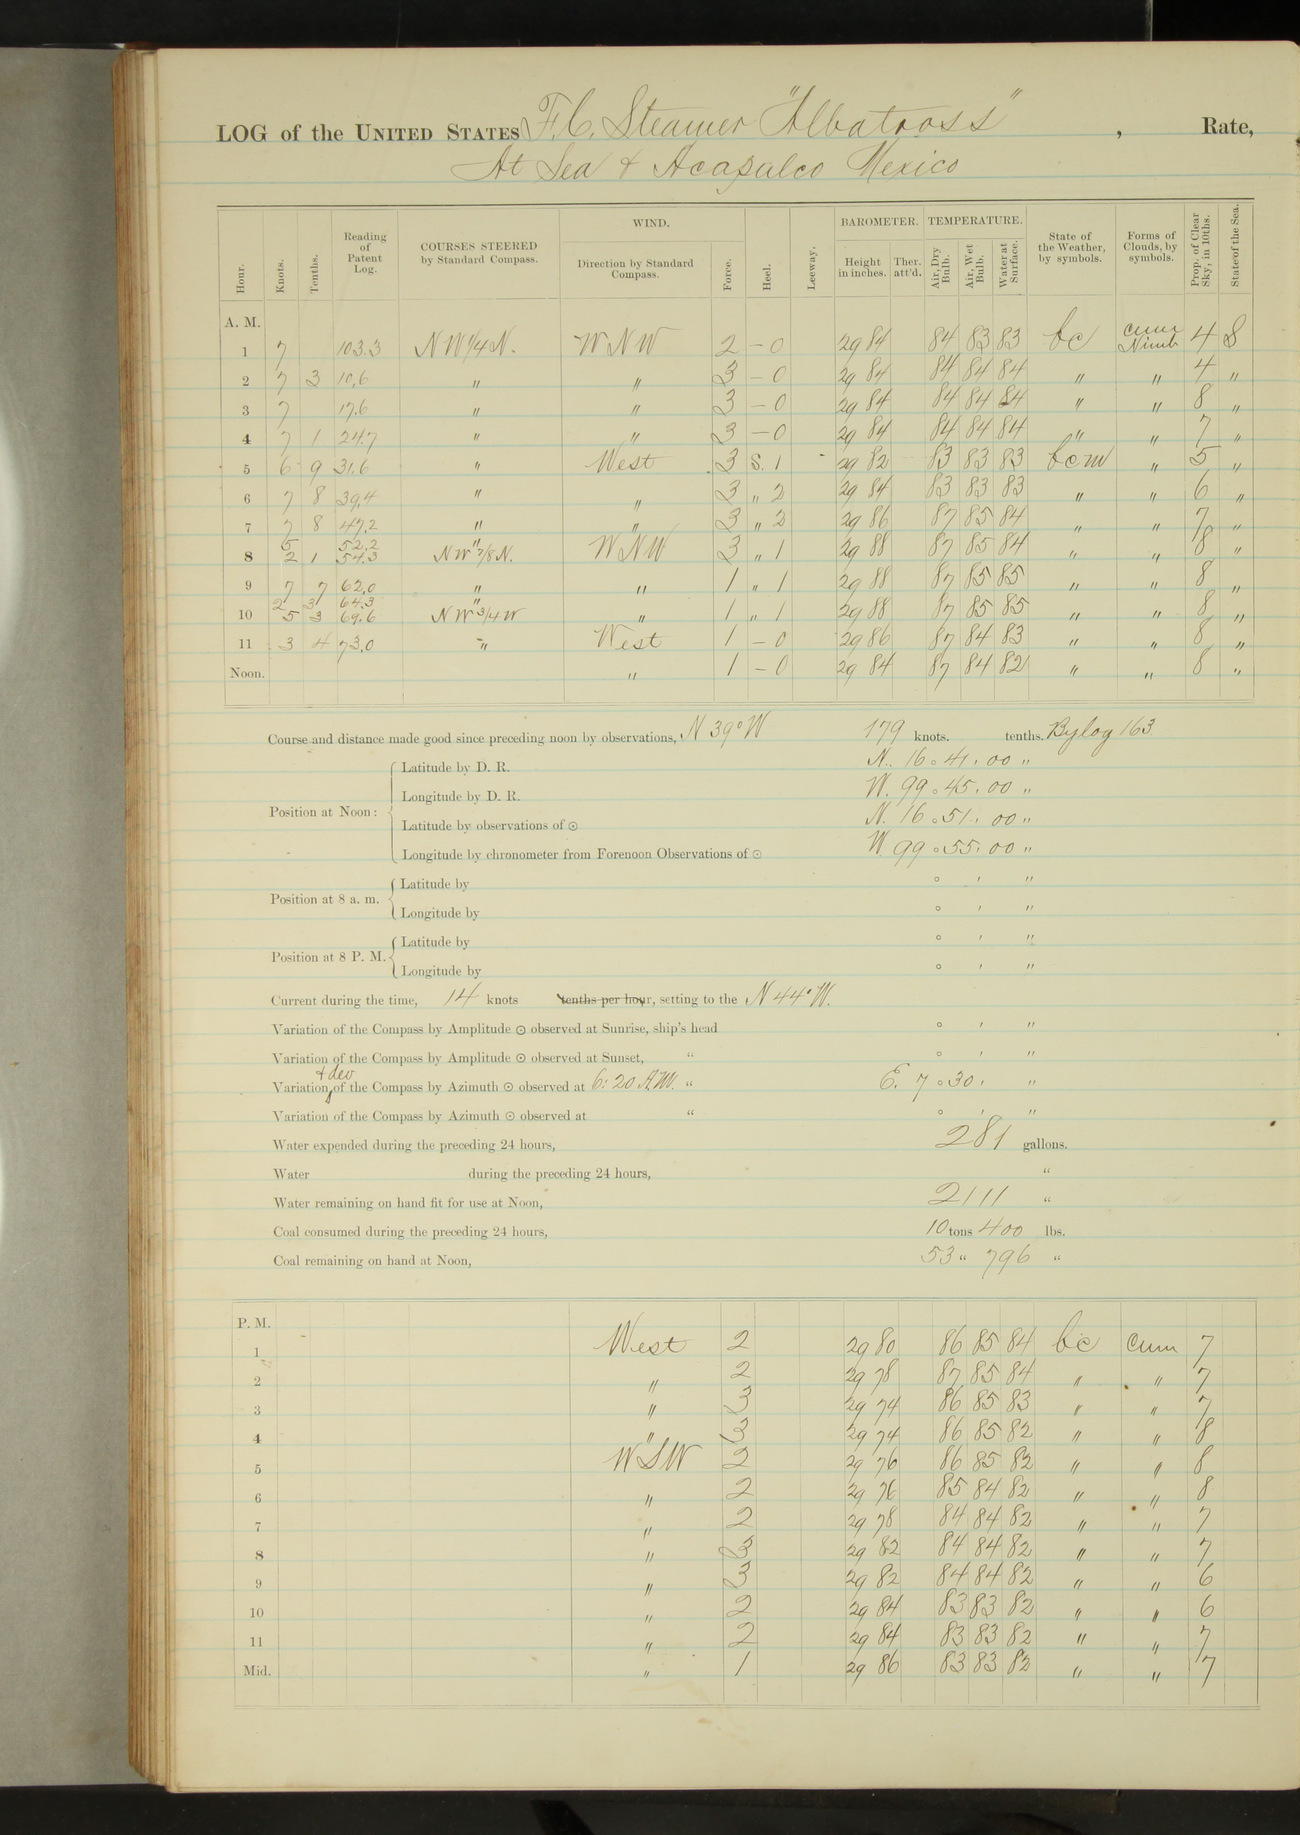 LOG of the UNITED STATES F.C. Steamer "Albatross", Rate,
At Sea & Acapulco Mexico
Hour. Knots. Tenths. Reading of Patent Log. COURSES STEERED by Standard Compass. WIND. Direction by Standard Compass. Force. Heel. Leeway. BAROMETER. Height in inches. Ther. att'd. TEMPERATURE. Air, Dry Bulb. Air, Wet Bulb. Water at Surface. State of the Weather, by symbols. Forms of Clouds, by symbols. Prop. of Clear Sky, in 10ths. State of the Sea.
A. M.
1 7 103.3 NW 1/4 N. WNW 2 - 0 29 84 84 83 83 bc Cum Nimb 4 S
2 7 3 10.6 " " 3 - 0 29 84 84 84 84 " " 4 "
3 7 17.6 " " 3 - 0 29 84 84 84 84 " " 8 "
4 7 1 24.7 " " 3 - 0 29 84 84 84 84 " " 7 "
5 6 9 31.6 " West 3 S. 1 29 82 83 83 83 bcm " 5 "
6 7 8 39.4 " " 3 " 2 29 84 83 83 83 " " 6 "
7 7 8 47.2 " " 3 " 2 29 86 87 85 84 " " 7 "
5 52.2 "
8 2 1 54.3 NW 7/8 N. WNW 3 " 1 29 88 87 85 84 " " 8 "
9 7 7 62.0 " " 1 " 1 29 88 87 85 85 " " 8 "
2 3 64.3 "
10 5 3 69.6 NW 3/4 W " 1 " 1 29 88 87 85 85 " " 8 "
11 3 4 73.0 " West 1 - 0 29 86 87 84 83 " " 8 "
Noon. " 1 - 0 29 84 87 84 82 " " 8 "
Course and distance made good since preceding noon by observations, N 39° W 179 knots. tenths. By log 163
Position at Noon:
Latitude by D. R. N. 16 ° 41 ' 00 "
Longitude by D. R. W. 99 ° 45 ' 00 "
Latitude by observations of ☉ N. 16 ° 51 ' 00 "
Longitude by chronometer from Forenoon Observations of ☉ W. 99 ° 55 ' 00 "
Position at 8 a. m.
Latitude by ° ' "
Longitude by ° ' "
Position at 8 P. M.
Latitude by ° ' "
Longitude by ° ' "
Current during the time, 14 knots tenths per hour, setting to the N 44° W.
Variation of the Compass by Amplitude ☉ observed at Sunrise, ship's head ° ' "
Variation of the Compass by Amplitude ☉ observed at Sunset, " ° ' "
Variation & dev of the Compass by Azimuth ☉ observed at 6:20 A.M. " E. 7 ° 30 ' "
Variation of the Compass by Azimuth ☉ observed at " ° ' "
Water expended during the preceding 24 hours, 281 gallons.
Water during the preceding 24 hours, "
Water remaining on hand fit for use at Noon, 2111 "
Coal consumed during the preceding 24 hours, 10 tons 400 lbs.
Coal remaining on hand at Noon, 53 " 796 "
P. M.
1 West 2 29 80 86 85 84 bc Cum 7
2 " 2 29 78 87 85 84 " " 7
3 " 3 29 74 86 85 83 " " 7
4 " 3 29 74 86 85 82 " " 8
5 WSW 2 29 76 86 85 82 " " 8
6 " 2 29 76 85 84 82 " " 8
7 " 2 29 78 84 84 82 " " 7
8 " 3 29 82 84 84 82 " " 7
9 " 3 29 82 84 84 82 " " 6
10 " 2 29 84 83 83 82 " " 6
11 " 2 29 84 83 83 82 " " 7
Mid. " 1 29 86 83 83 82 " " 7